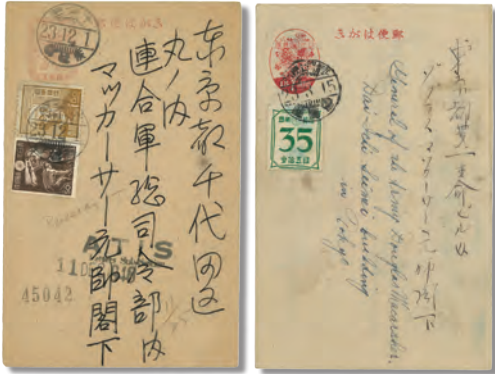 郵便はがき
23.12.1
東京都千代田区
丸ノ内
連合軍総司令部内
マッカーサー元帥閣下
ATIS
45042
郵便はがき
35
東京都第一生命ビル内
マッカーサー元帥閣下
General of the Army Douglas MacArthur,
building
in Tokyo